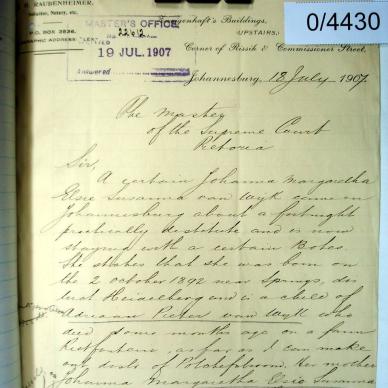 RAUBENHEIMER,
Solicitor, Notary, etc.
P.O. BOX 3836.
MASTER'S OFFICE
No 22612
19 JUL. 1907
Answered
Buildings,
(UPSTAIRS)
Corner of Rissik & Commissioner Street.
0/4430
Johannesburg, 18 July 1907.
The Master
of the Supreme Court
Pretoria
Sir,
A certain Johanna Margaretha
Elsie Susanna van Wyk came in
Johannesburg about a fortnight
practically destitute and is now
staying with a certain Botes.
She states that she was born on
the 2 October 1892 near Springs, dis
trict Heidelberg and is a child of
Adriaan Pieter van Wyk who
died some months ago on a farm
Rietfontein, as far as I can make
out distr. of Potchefstroom. Her mother
Johanna Margaretha Elsie Susanna